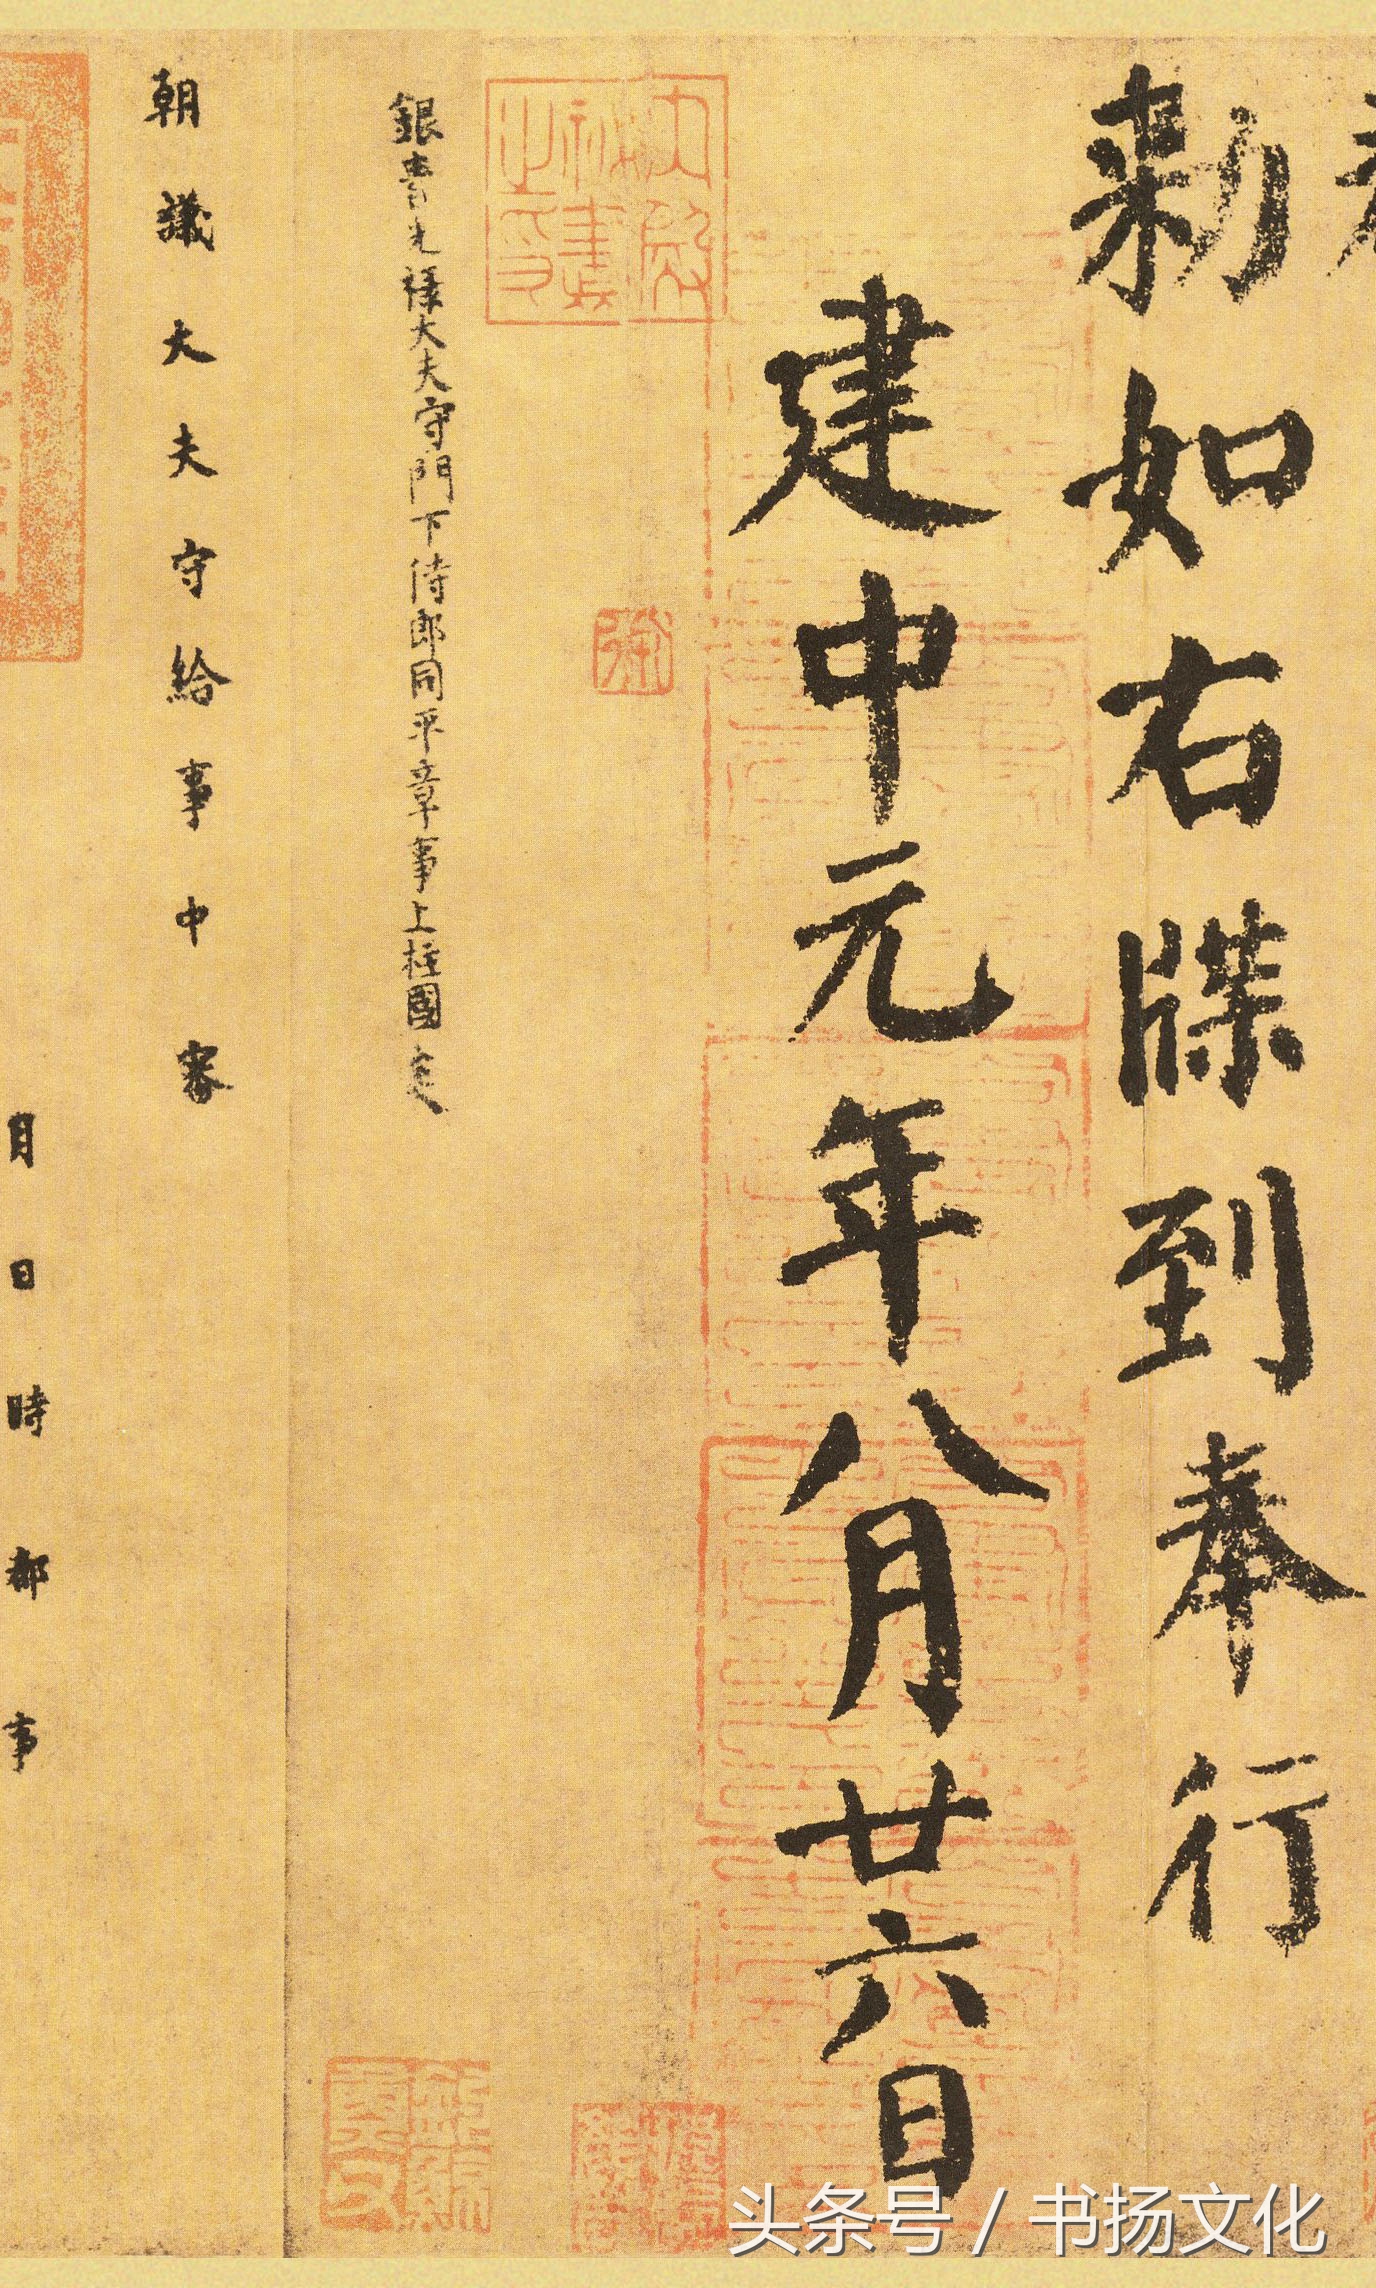 奉
勅如右牒到奉行
建中元年八月廿六日
銀青光祿大夫守門下侍郎同平章事上柱國炎
朝議大夫守給事中審
月日時都事
頭条号 / 书扬文化